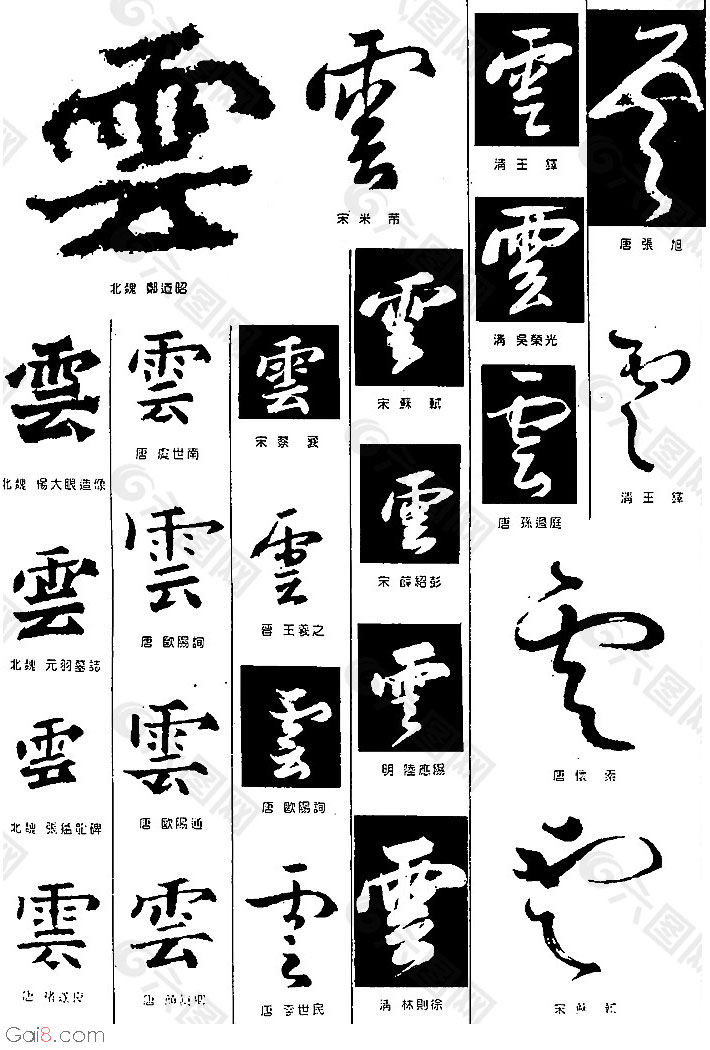 雲
北魏 鄭道昭
雲
北魏 楊大眼造像
雲
北魏 元羽墓誌
雲
北魏 張猛龍碑
雲
唐 褚遂良
雲
唐 虞世南
雲
唐 歐陽詢
雲
唐 歐陽通
雲
唐 顏真卿
雲
宋 米芾
雲
宋 蔡襄
雲
晉 王羲之
雲
唐 歐陽詢
雲
唐 李世民
雲
宋 蘇軾
雲
宋 薛紹彭
雲
明 陸應陽
雲
清 林則徐
雲
清 王鐸
雲
清 吳榮光
雲
唐 孫過庭
雲
唐 張旭
雲
清 王鐸
雲
唐 懷素
雲
宋 蘇軾
六图网
Gai8.com